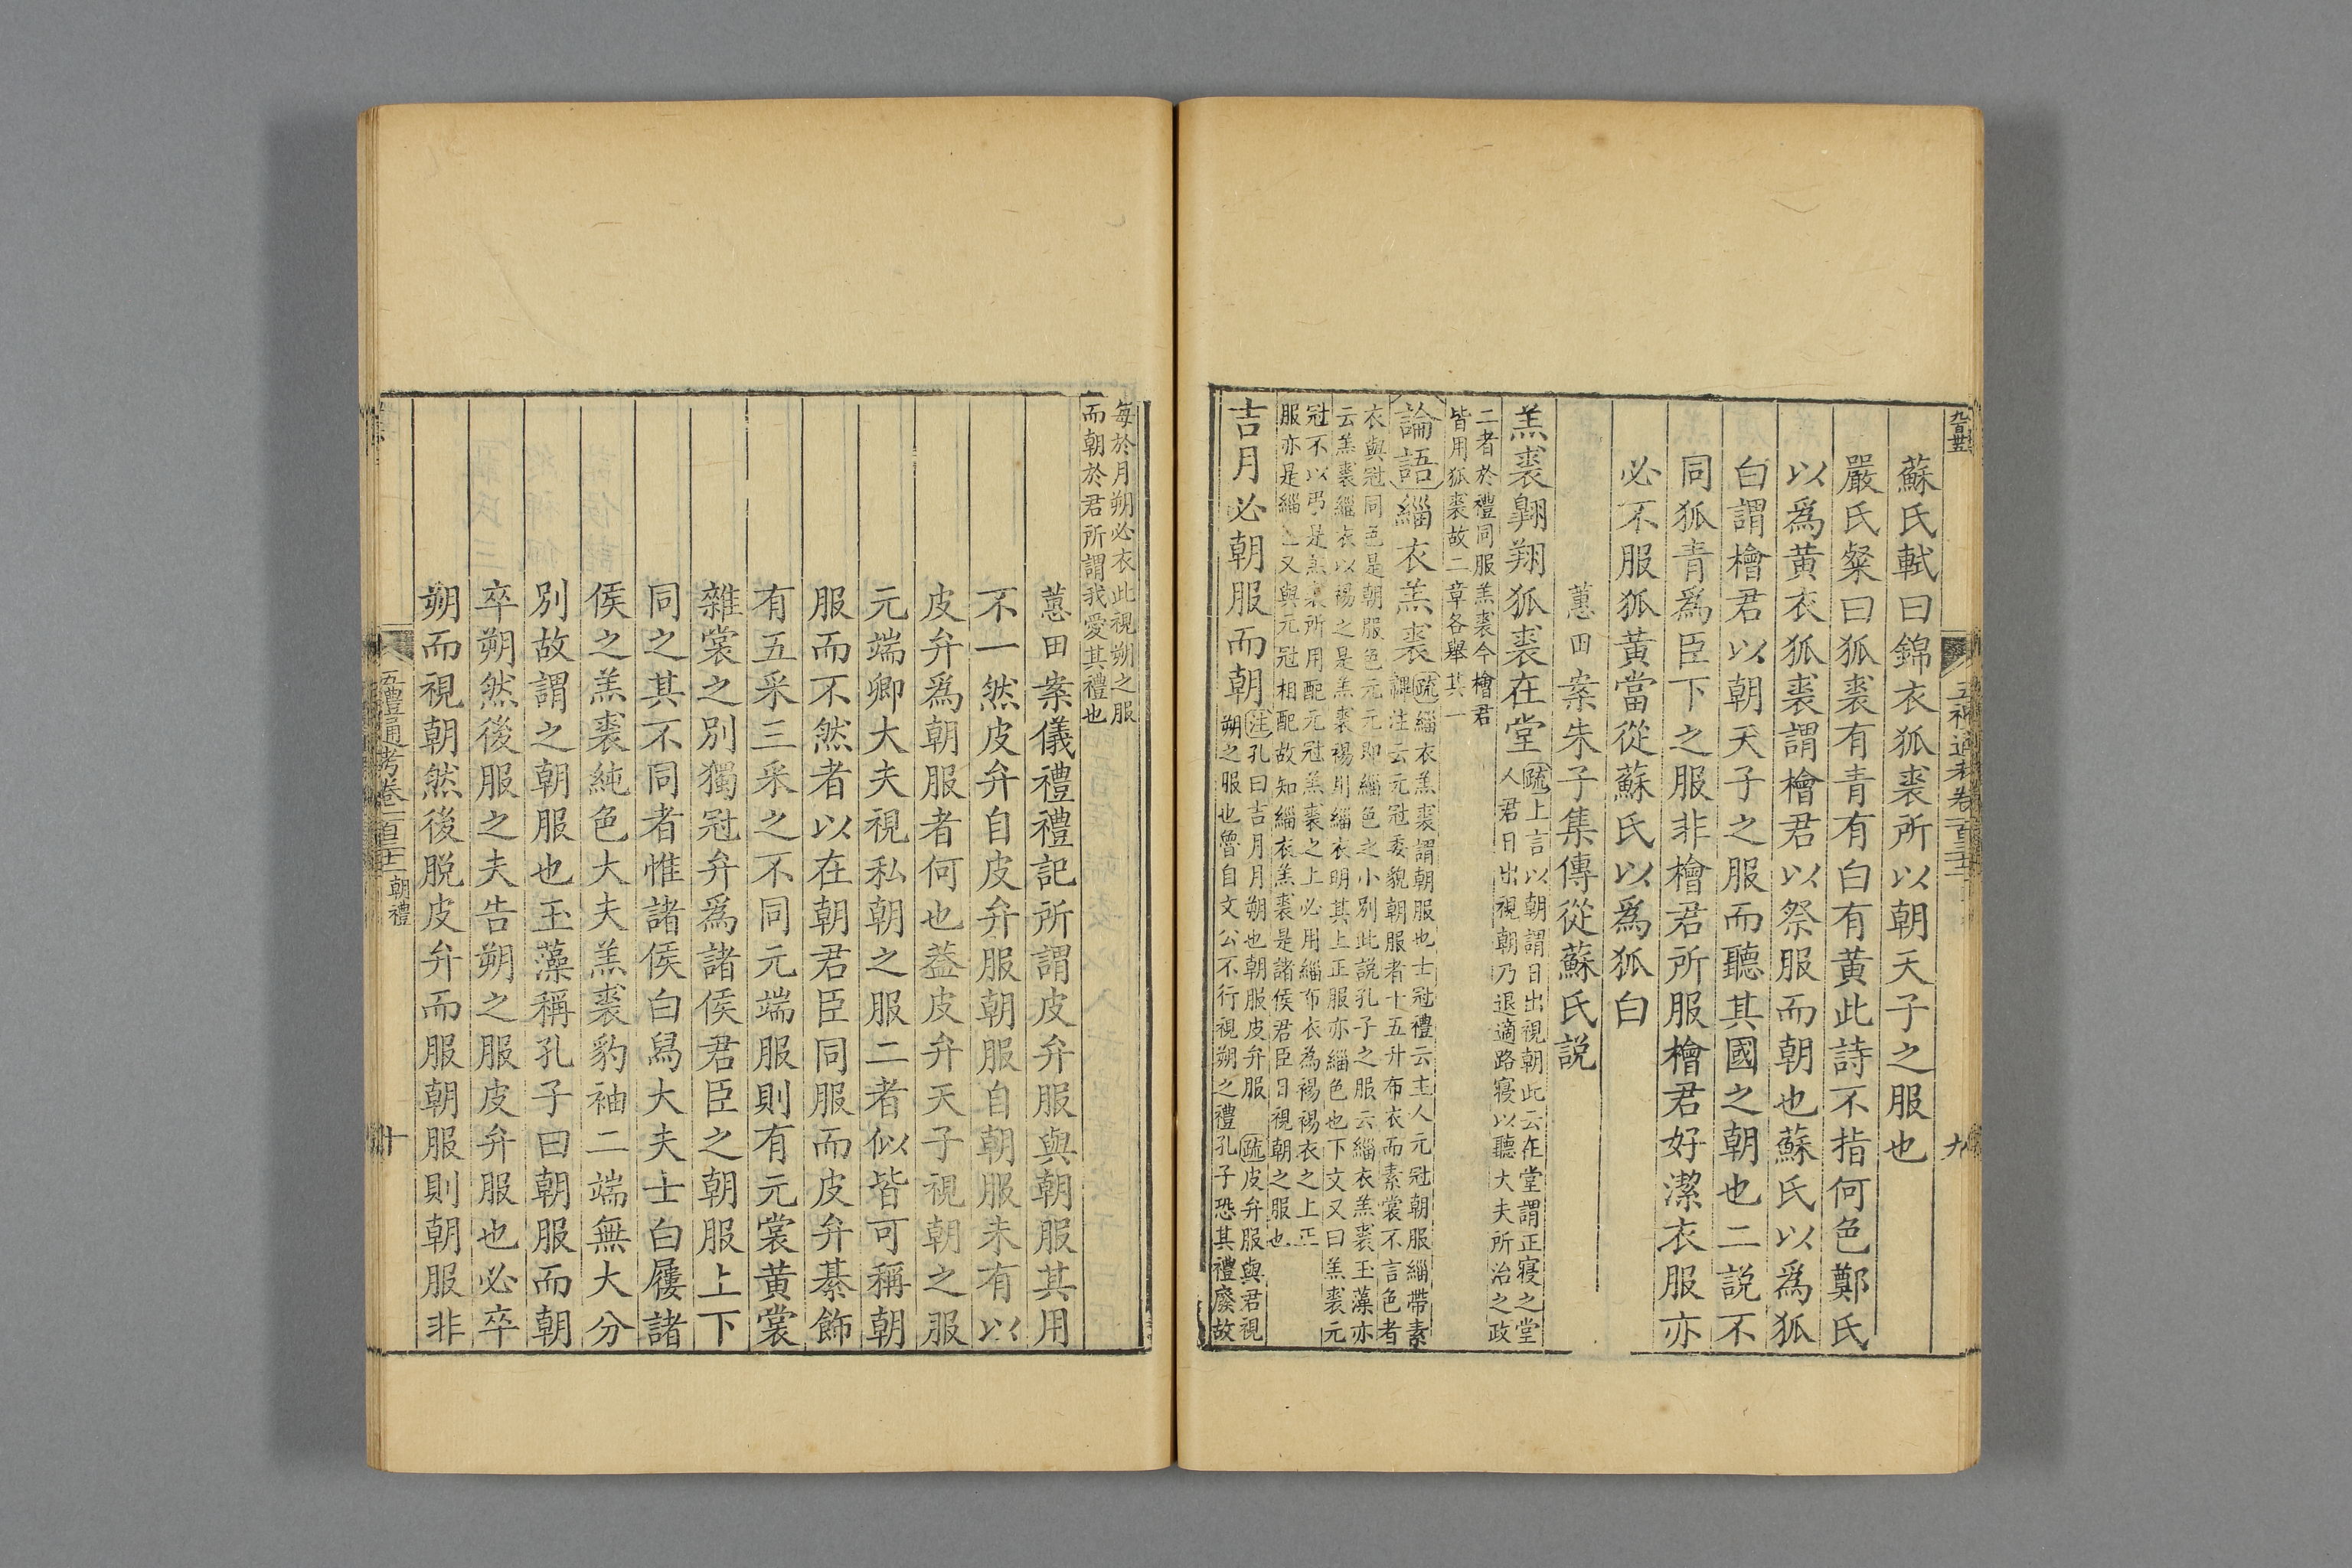 蘇氏軾曰錦衣狐裘所以朝天子之服也
嚴氏粲曰狐裘有青有白有黄此詩不指何色鄭氏
以爲黄衣狐裘謂檜君以祭服而朝也蘇氏以爲狐
白謂檜君以朝天子之服而聽其國之朝也二説不
同狐青爲臣下之服非檜君所服檜君好潔衣服亦
必不服狐黄當從蘇氏以爲狐白
蕙田案朱子集傳從蘇氏説
羔裘翺翔狐裘在堂
疏上言以朝謂日出視朝此云在堂謂正寝之堂
人君日出視朝乃退適路寝以聽大夫所治之政
二者於禮同服羔裘今檜君
皆用狐裘故二章各舉其一
論語緇衣羔裘
疏緇衣羔裘謂朝服也士冠禮云主人元冠朝服緇帶素
韠注云元冠委貌朝服者十五升布衣而素裳不言色者
衣與冠同色是朝服色元元即緇色之小别此説孔子之服云緇衣羔裘玉藻亦
云羔裘緇衣以裼之是羔裘裼用緇衣明其上正服亦緇色也下文又曰羔裘元
冠不以弔是羔裘所用配元冠羔裘之上必用緇布衣為裼裼衣之上正
服亦是緇色又與元冠相配故知緇衣羔裘是諸侯君臣日視朝之服也
吉月必朝服而朝
注孔曰吉月月朔也朝服皮弁服 疏皮弁服與君視
朔之服也魯自文公不行視朔之禮孔子恐其禮廢故
每於月朔必衣此視朔之服
而朝於君所謂我愛其禮也
蕙田案儀禮禮記所謂皮弁服與朝服其用
不一然皮弁自皮弁服朝服自朝服未有以
皮弁爲朝服者何也葢皮弁天子視朝之服
元端卿大夫視私朝之服二者似皆可稱朝
服而不然者以在朝君臣同服而皮弁綦飾
有五采三采之不同元端服則有元裳黄裳
雜裳之别獨冠弁爲諸侯君臣之朝服上下
同之其不同者惟諸侯白舄大夫士白屨諸
侯之羔裘純色大夫羔裘豹袖二端無大分
别故謂之朝服也玉藻稱孔子曰朝服而朝
卒朔然後服之夫告朔之服皮弁服也必卒
朔而視朝然後脱皮弁而服朝服則朝服非
五禮通考卷一百三十二 朝禮
十
九